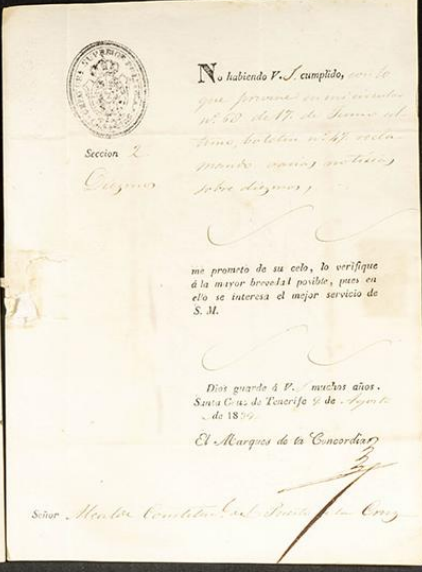 GEFATURA SUPERIOR POLITICA
Seccion 2.
Diezmos
No habiendo V. S. cumplido, con lo
que previne en mi circular
n.º 68 de 17 de Junio ul-
timo, boletin n.º 47 recla-
mando varias noticias
sobre diezmos,
me prometo de su celo, lo verifique
á la mayor brevedad posible, pues en
ello se interesa el mejor servicio de
S. M.
Dios guarde á V. S. muchos años.
Santa Cruz de Tenerife 9 de Agosto
de 18
El Marques de la Concordia
Señor Alcalde Constitucl. del Puerto de la Cruz